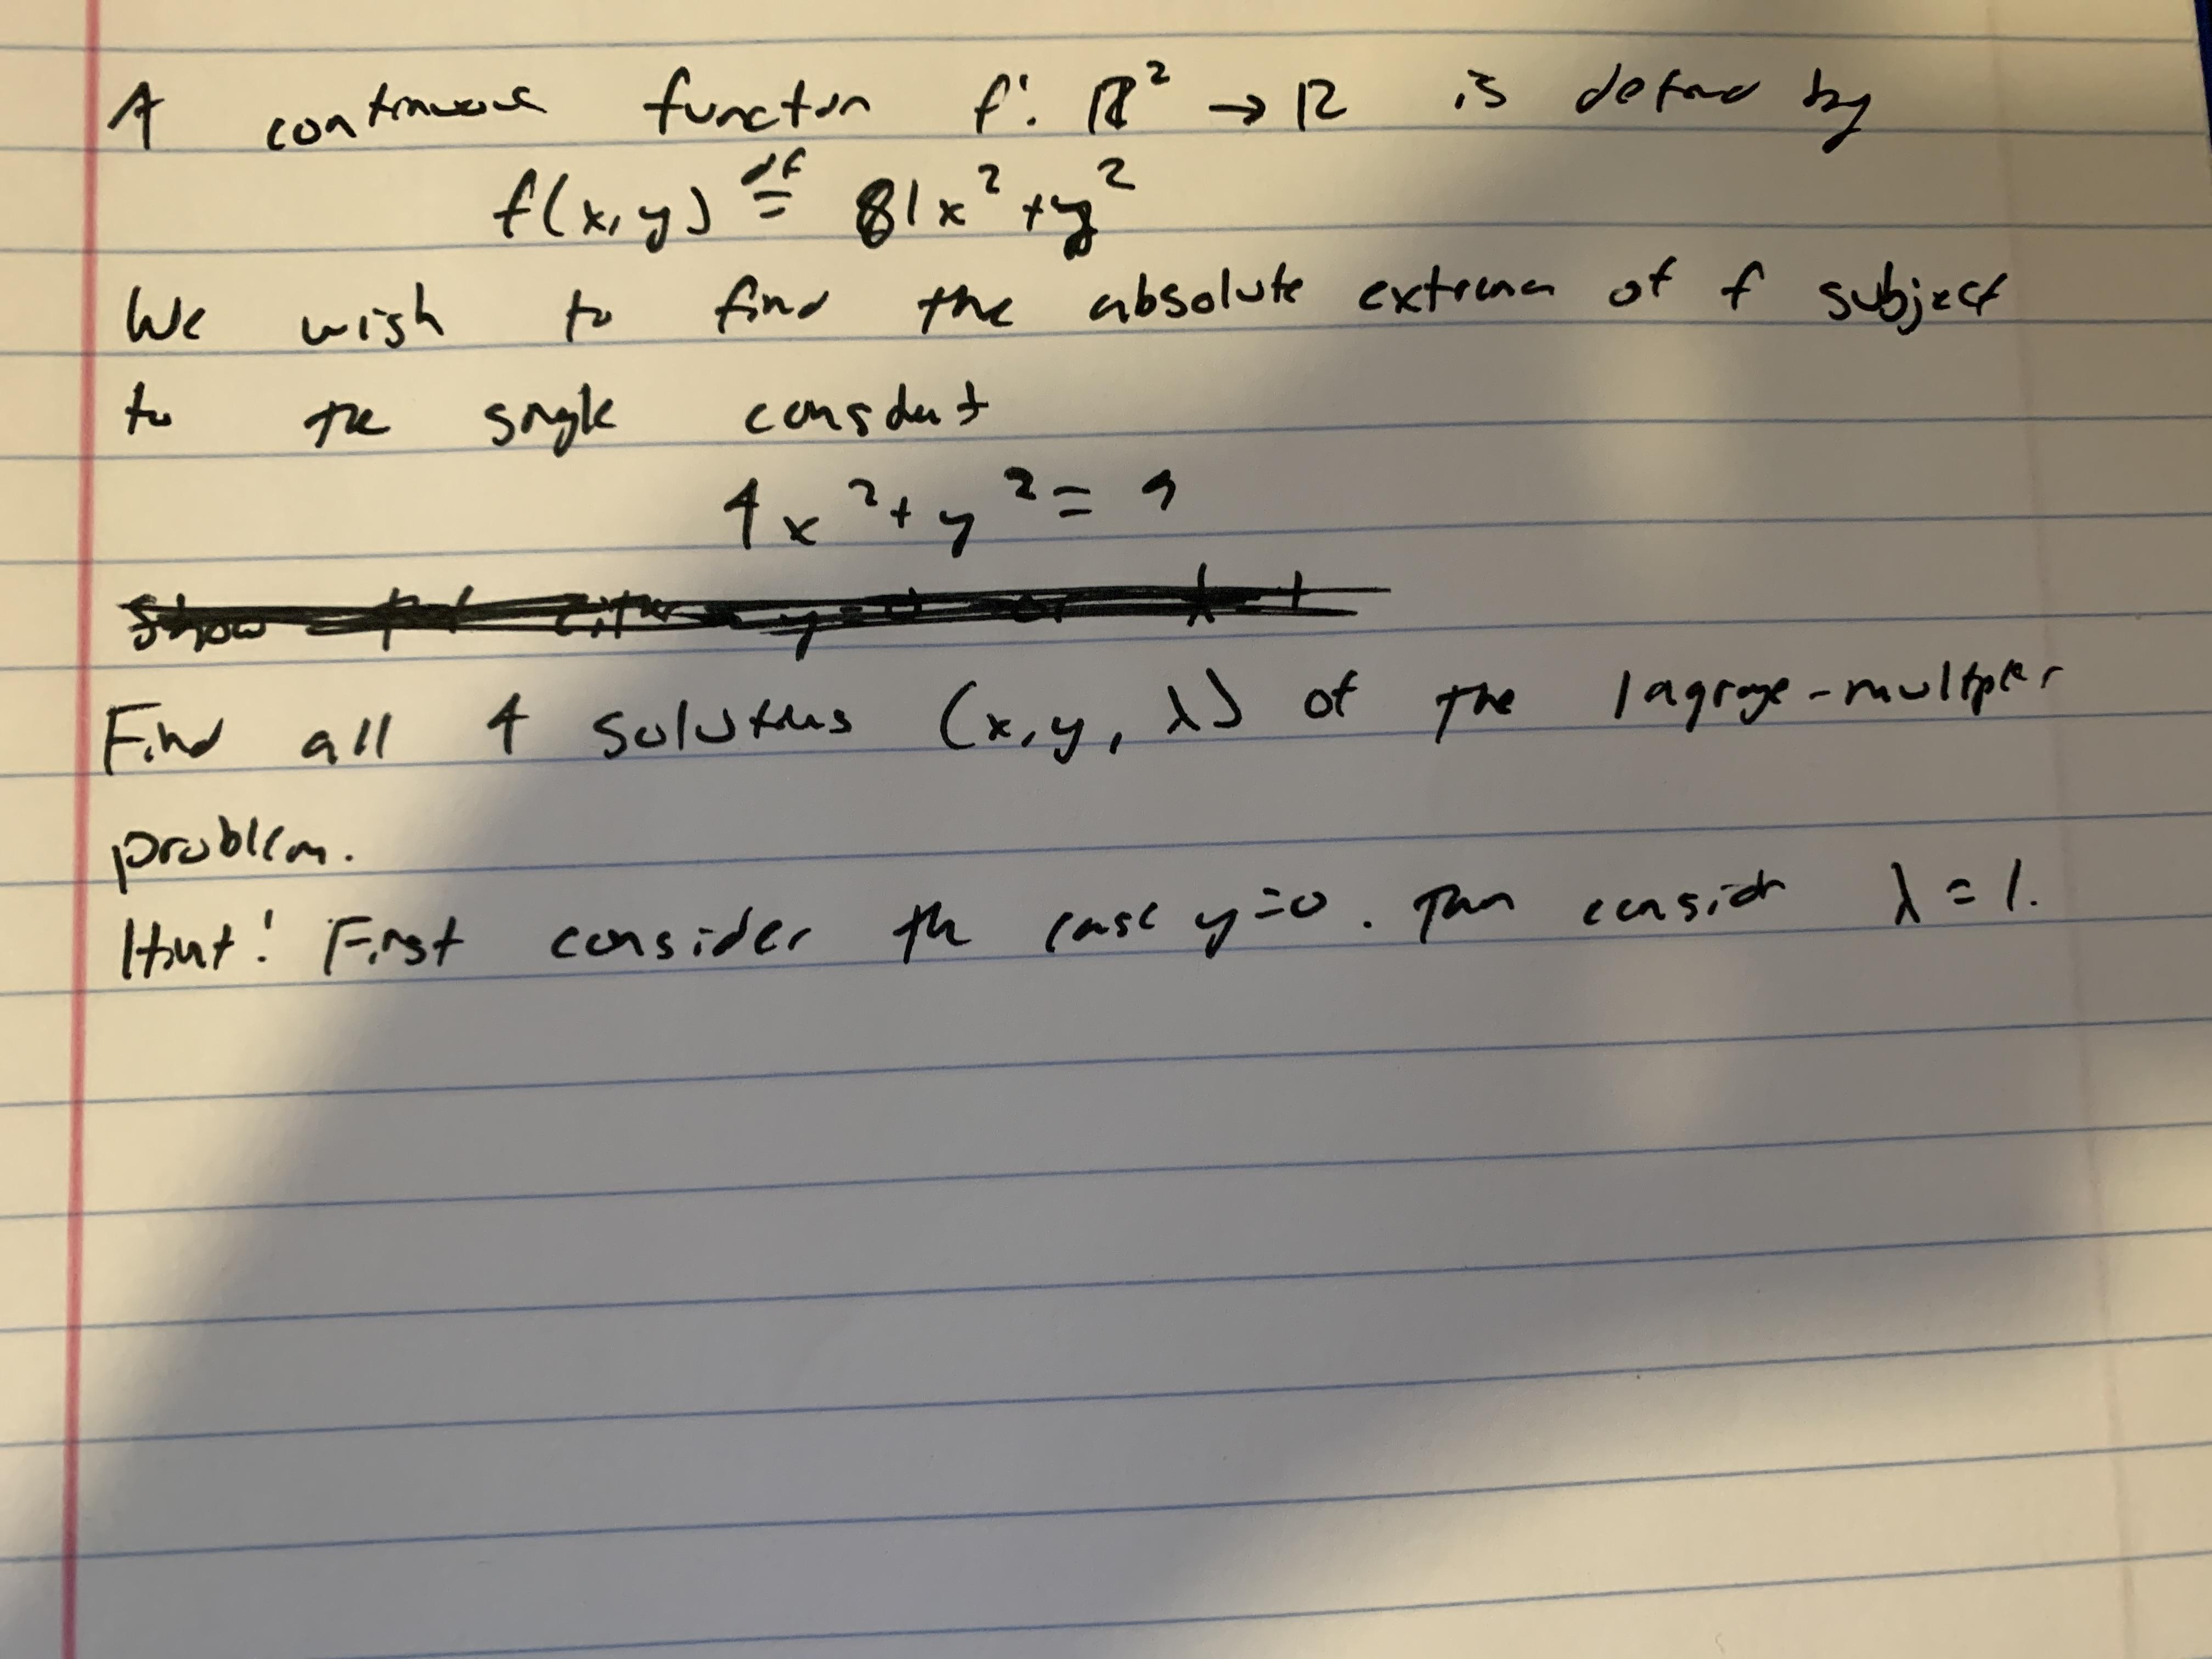 A continuous function f: ℝ² → ℝ is defined by
f(x,y) ≝ 81x² + y²
We wish to find the absolute extrema of f subject
to the single
4x² + y² = 9
Show that either y=0 or
Find all 4 solutions (x, y, λ) of the lagrange-multiplier
problem.
Hint: First consider the case y=0. Then consider λ = 1.